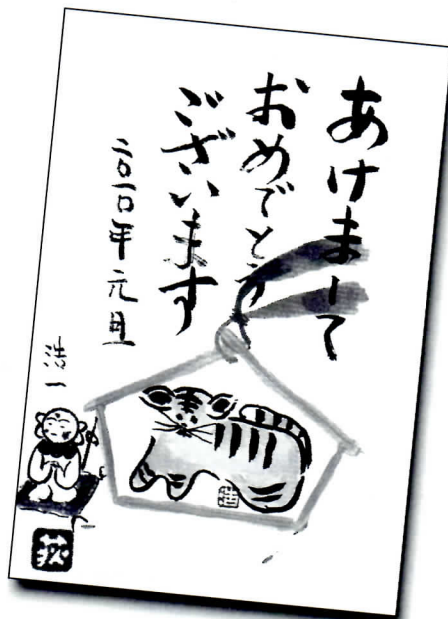 あけまして
おめでとう
ございます
二〇一〇年元旦
浩一
浩
荻